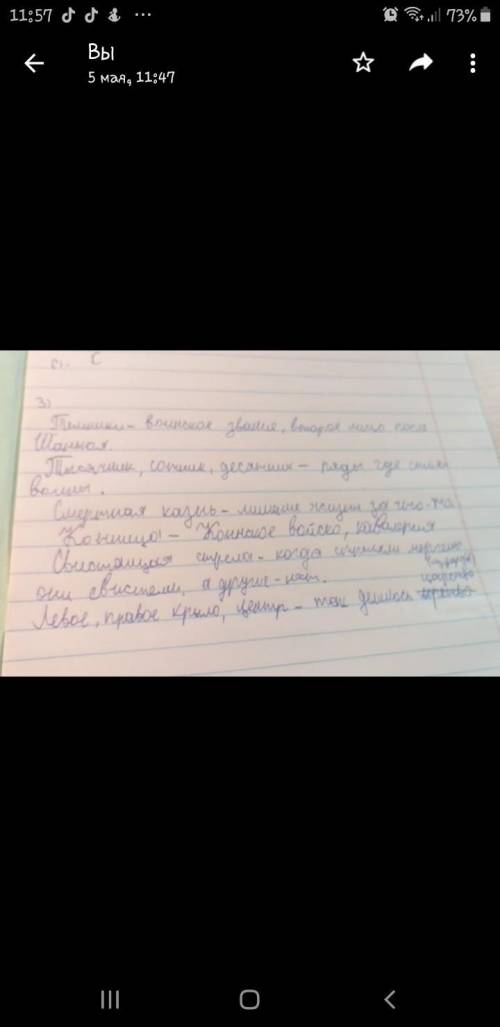 11:57 ... 73%
Вы
5 мая, 11:47
С
3)
воинское звание, второе после
Тысячник, сотник, десятник - ряды где стояли
воины.
Смертная казнь - лишение жизни за что-то
Конница - Конское войско, кавалерия
Свистящая стрела - когда
они свистели, а другие - нет. царство
Левое, правое крыло, центр - так делилось